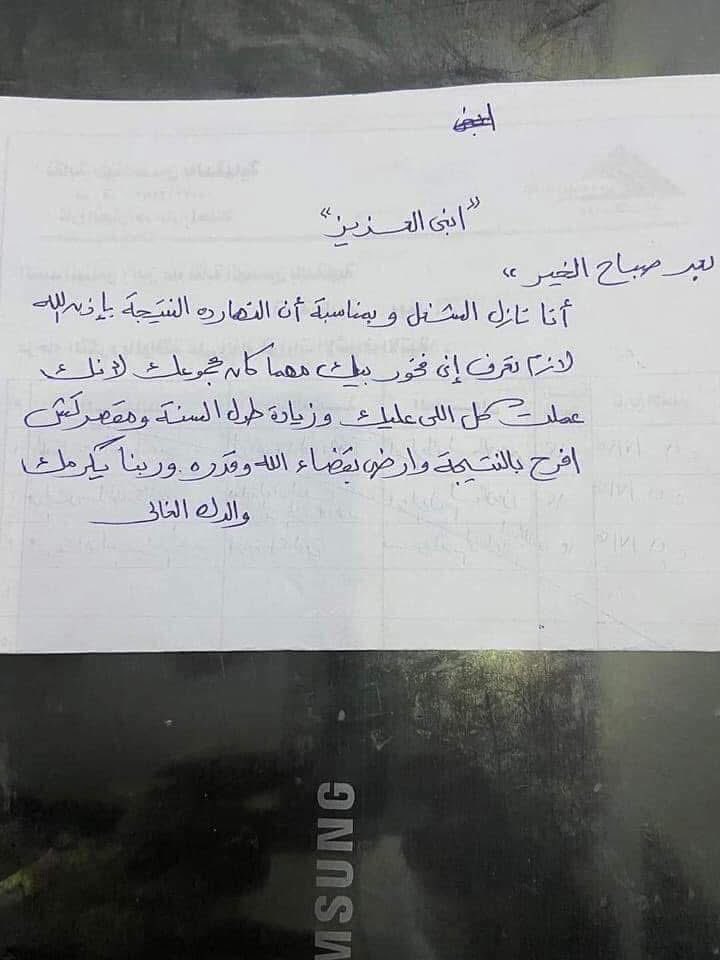 "ابنى العزيز"
بعد صباح الخير ،،
أنا نازل الشغل و بمناسبة أن النهارده النتيجة بإذن الله
لازم تعرف إنى فخور بيك مهما كان مجموعك لأنك
عملت كل اللى عليك وزيادة طول السنة ومقصرتش
افرح بالنتيجة وارض بقضاء الله وقدره. وربنا يكرمك
والدك الغالى
MSUNG